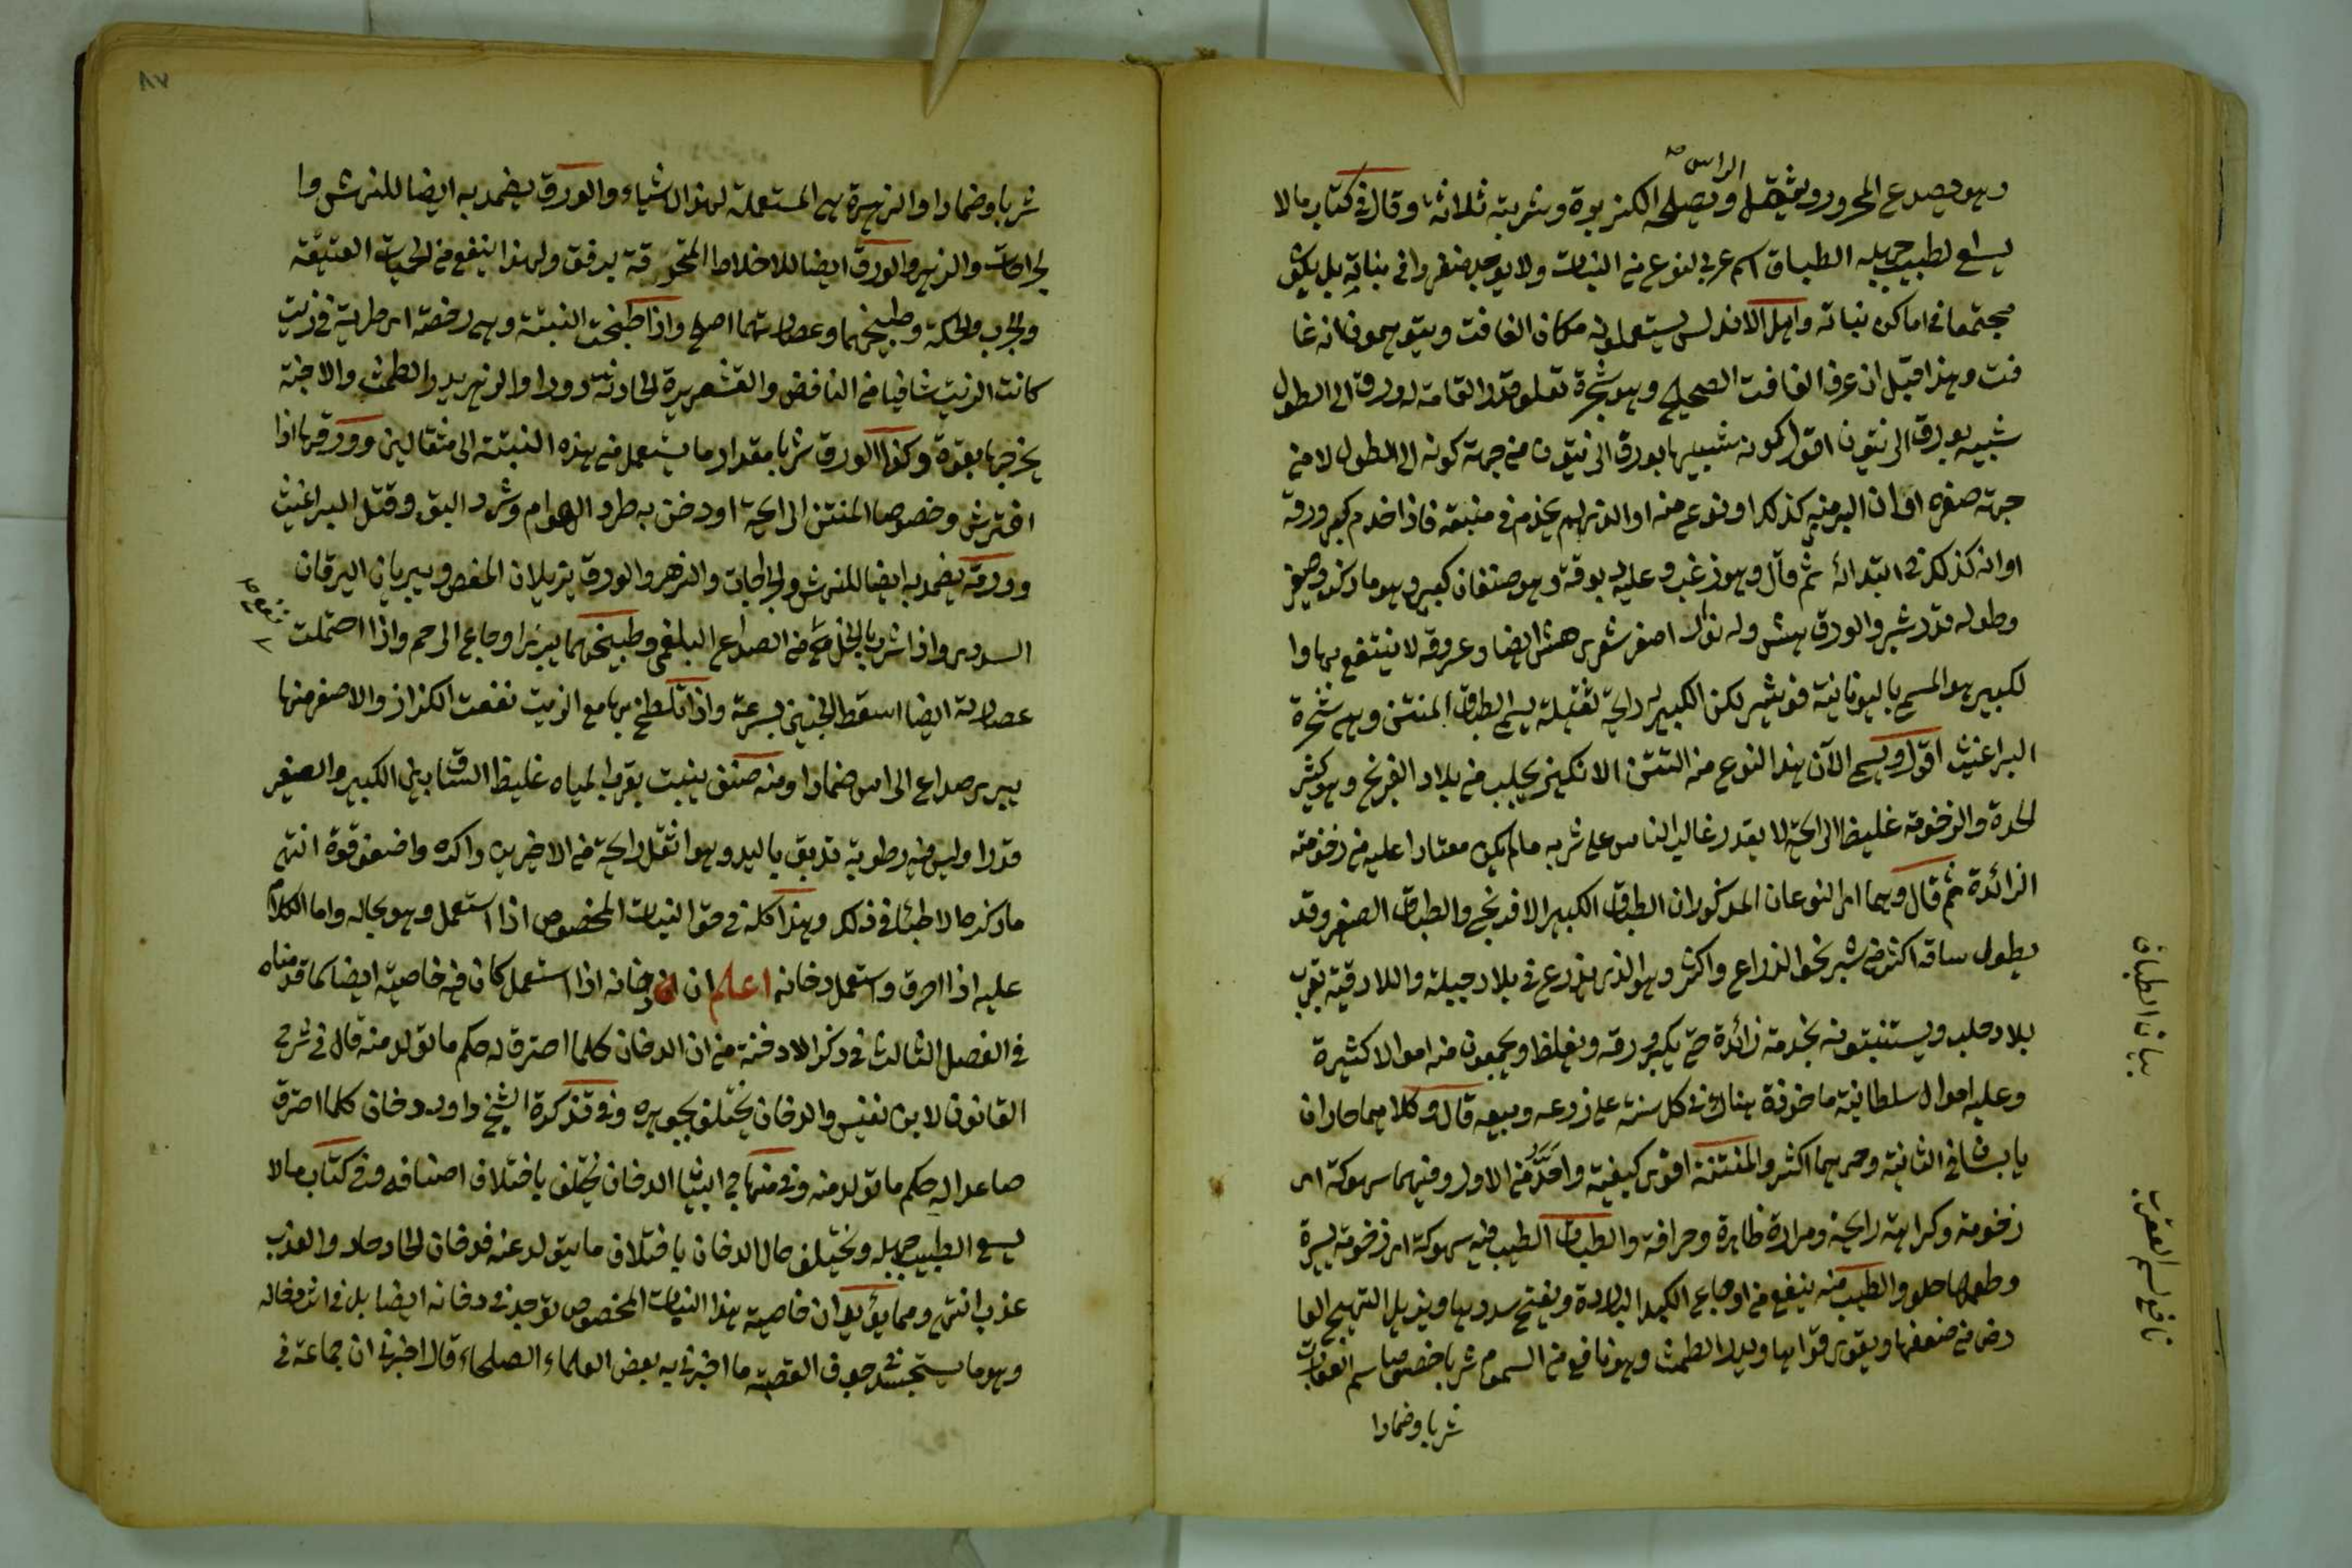 وهو يصدع المحرور ويثقل الراس وتصلحه الكزبرة وشربته ثلاثة وقال في كتاب مالا
يسع لطبيب جهله الطباق اسم عربي لنوع من النبات ولا يوجد منفردا في نباته بل يكون
مجتمعا في اماكن نباته واهل الاندلس يستعملونه مكان الغافت ويتوهمون انه غا
فت وهذا قبل ان عرف الغافت الصحيح وهو شجرة تعلو قدر القامة له ورق الى الطول
شبيه بورق الزيتون اقول كونه شبيها بورق الزيتون من جهة كونه الى الطول لا من
جهة صغره او ان البري منه كذلك او نوع منه او الذي لم يخدم في منبته فاذا خدم كبر ورقه
او انه كذلك في ابتدائه ثم قال وهو زغب وعليه دبوقة وهو صنفان كبير وهو ما ذكر وصغير
وطوله قدر شبر والورق هش وله نوار اصفر شعري هش ايضا وعروقه لا ينتفع بها وا
لكبير هو المسمى باليونانية قونيثير لكن الكبير له رايحة ثقيلة يسمى الطباق المنتن وهي شجرة
البراغيث اقول ويسمى الآن هذا النوع من التتن الانكيز يجلب من بلاد الفرنج وهو كثير
الحدة والزخومة غليظ الرايحة لا يقدر غالب الناس على شربه مالم يكن معتادا عليه من زخومته
الزائدة ثم قال وهما اي النوعان المذكوران الطباق الكبير الافرنجي والطباق الصغير وقد
يطول ساقه اكثر من شبر نحو الذراع واكثر وهو الذي يزرع في بلاد جبيلة واللادقية بقرب
بلاد حلب ويستنبتونه بخدمة زائدة حتى يكبر ورقه ويغلظ ويجمعون منه اموالا كثيرة
وعليه اموال سلطانية ماخوذة هناك في كل سنة على زرعه وبيعه قال وكلاهما حاران
يابسان في الثانية وحرهما اكثر والمنتنة اقوى كيفية واحد من الاول وفيهما سهوكة اي
زخومة وكراهة رايحة ومرارة ظاهرة وحرافة والطباق الطيب فيه سهوكة اي زخومة يسيرة
وطعمها حلو والطيب منه ينفع من اوجاع الكبد الباردة ويفتح سددها ويزيل التهيج العا
رض من ضعفها ويقوى قواها ويدر الطمث وهو نافع من السموم شربا خصوصا سم العقارب
شربا وضمادا
بيان الطباق
نافع لسم العقرب
٨٧
شربا وضمادا والزهرة هي المستعملة لهذا الاشياء والورق يضمد به ايضا للنهش وا
لجراحات والزهر والورق ايضا للاخلاط المحترقة برفق ولهذا ينفع من الحميات العتيقة
والجرب والحكة وطبيخهما وعصارتهما اصلح واذا طبخت النبتة وهي رخصة اي طرية في زيت
كانت الزيت شافيا من النافض والقشعريرة الحادثة دورا والزهر يدر الطمث والاجنة
يخرجها بقوة وكذا الورق شربا مقدار ما يستعمل من هذه النبتة الى مثقالين وورقها اذا
افترش وخصوصا المنتن الرايحة او دخن به طرد الهوام وشرد البق وقتل البراغيث
وورقه يضمد به ايضا للنهش والجراحات والزهر والورق يزيلان المغص ويبريان اليرقان
السددي واذا شربا بالخل نفع من الصداع البلغمي وطبيخهما يبري اوجاع الرحم واذا احتملت
عصارته ايضا اسقط الجنين بسرعة واذا تلطخ بها مع الزيت نفعت الكزاز والاصفر منها
يبري صداع الراس ضمادا ومنه صنف ينبت بقرب المياه غليظ الساق بين الكبير والصغير
قدرا وليس فيه رطوبة تدبق باليد وهو اثقل رايحة من الاخيرين واكره واضعف قوة انتهى
ما ذكره الاطباء في ذلك وهذا كله في حق النبات المخصوص اذا استعمل وهو بحاله واما الكلام
عليه اذا احرق واستعمل دخانه اعلم ان دخانه اذا استعمل كان فيه خاصية ايضا كما قدمناه
في الفصل الثالث في ذكر الادخنة من ان الدخان كلما احترق له حكم ما تولد منه قال في شرح
القانون لابن نفيس والدخان يختلف بجوهره وفي تذكرة الشيخ داود دخان كلما احترق
صاعدا له حكم ما تولد منه وفي منهاج البيان الدخان يختلف باختلاف اصنافه وفي كتاب مالا
يسع الطبيب جهله ويختلف حال الدخان باختلاف ما يتولد عنه فدخان الحاد حاد والعذب
عذب انتهى ومما يؤيد ان خاصية هذا النبات المخصوص توجد في دخانه ايضا بل في اثر دخانه
وهو ما يستجسد في جوف القصبة ما اخبرني به بعض العلماء الصلحاء قال اخبرني ان جماعة في